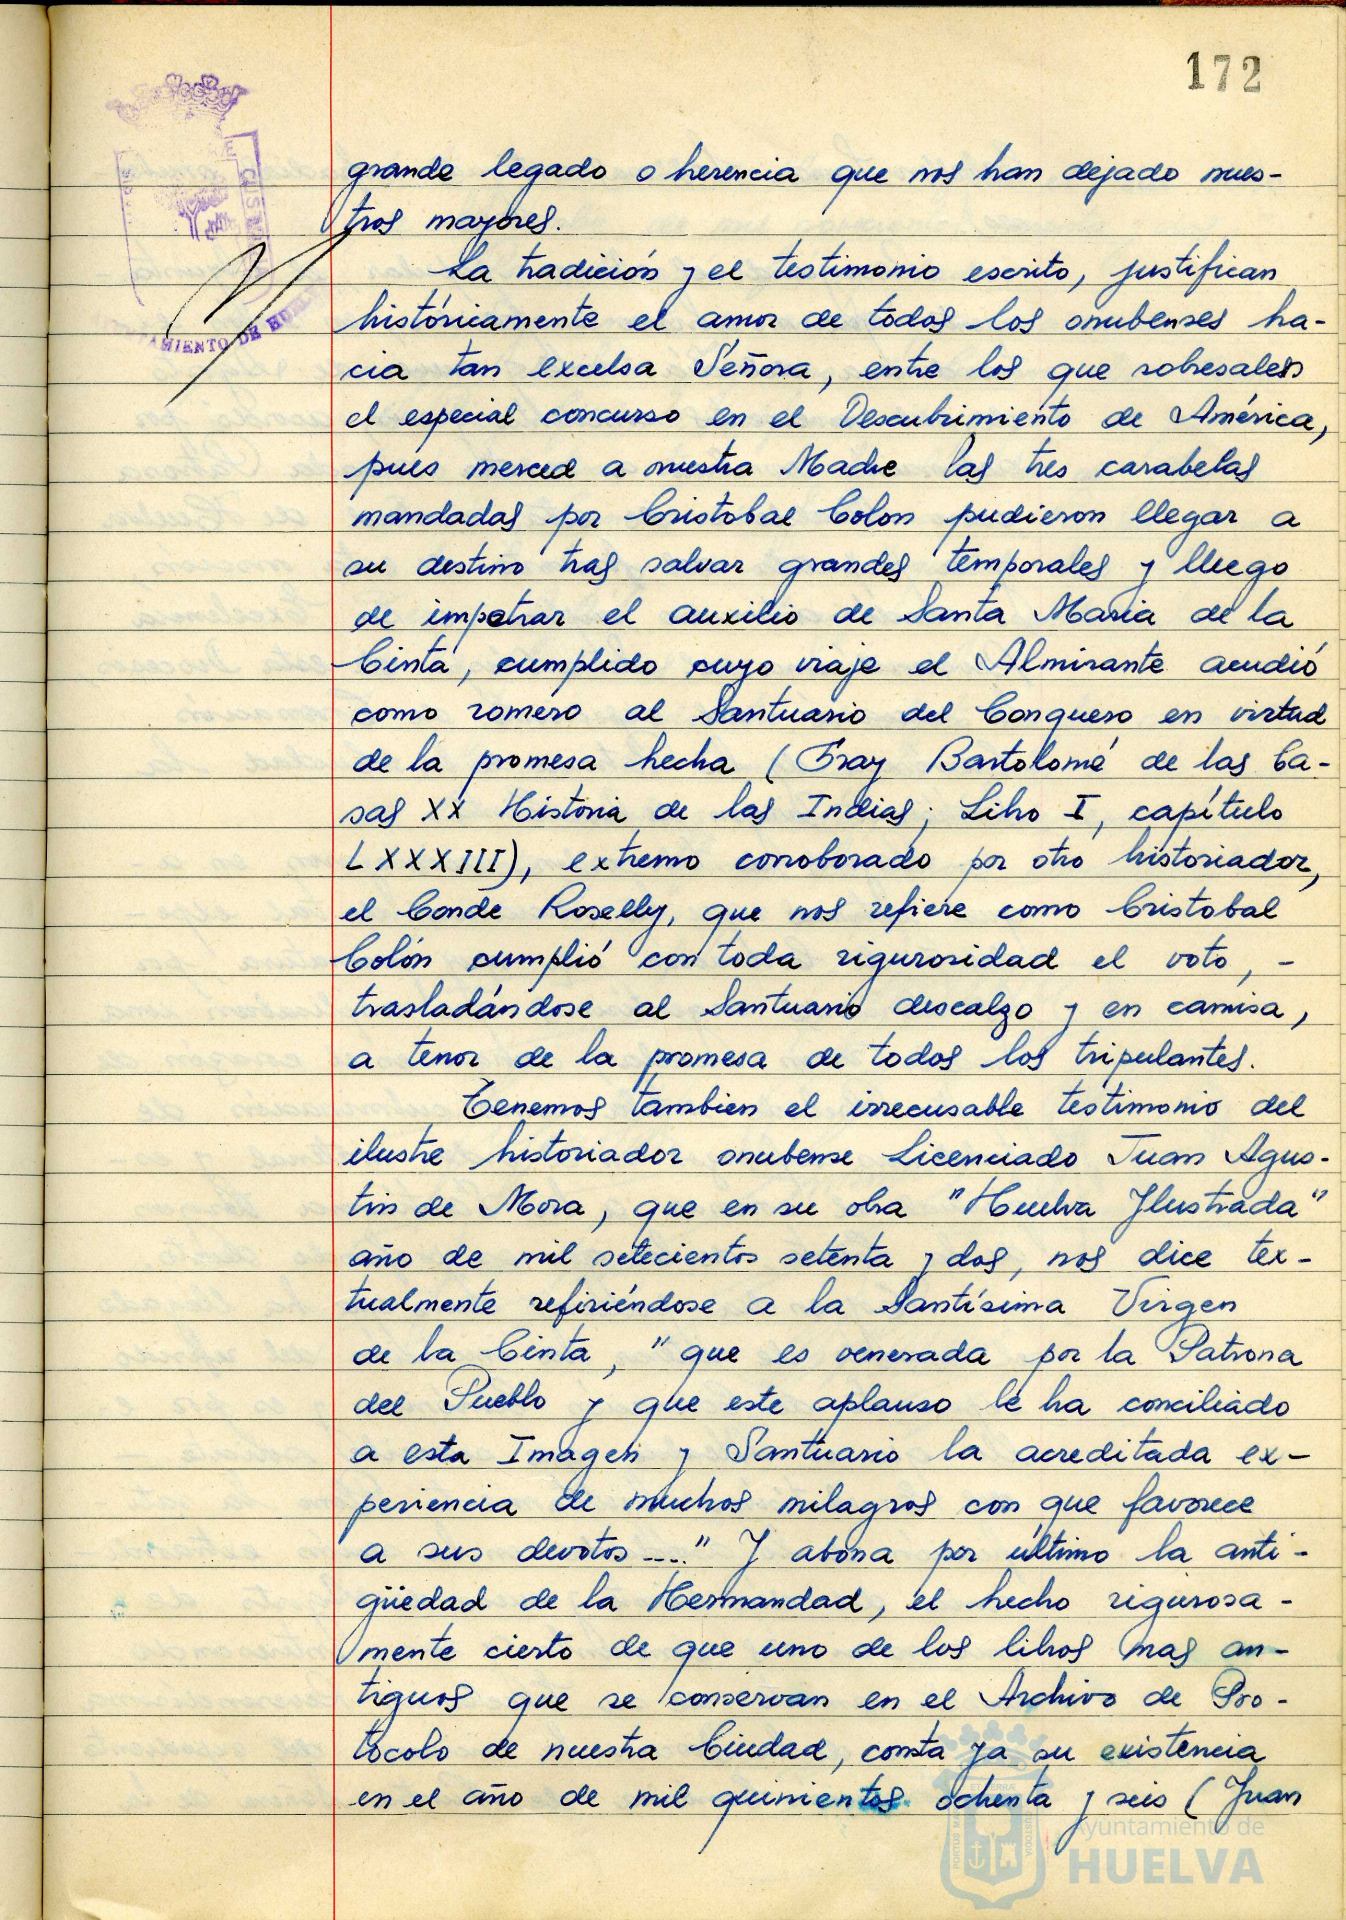 172
grande legado o herencia que nos han dejado nues-
tros mayores.
La tradición y el testimonio escrito, justifican
históricamente el amor de todos los onubenses ha-
cia tan excelsa Señora, entre los que sobresalen
el especial concurso en el Descubrimiento de América,
pues merced a nuestra Madre las tres carabelas
mandadas por Cristobal Colon pudieron llegar a
su destino tras salvar grandes temporales y luego
de impetrar el auxilio de Santa Maria de la
Cinta, cumplido cuyo viaje el Almirante acudió
como romero al Santuario del Conquero en virtud
de la promesa hecha (Fray Bartolomé de las Ca-
sas XX Historia de las Indias; Libro I, capítulo
LXXXIII), extremo corroborado por otro historiador,
el Conde Roselly, que nos refiere como Cristobal
Colón cumplió con toda rigurosidad el voto, -
trasladándose al Santuario descalzo y en camisa,
a tenor de la promesa de todos los tripulantes.
Tenemos tambien el irrecusable testimonio del
ilustre historiador onubense Licenciado Juan Agus-
tin de Mora, que en su obra "Huelva Ilustrada"
año de mil setecientos setenta y dos, nos dice tex-
tualmente refiriéndose a la Santísima Virgen
de la Cinta, "que es venerada por la Patrona
del Pueblo y que este aplauso le ha conciliado
a esta Imagen y Santuario la acreditada ex-
periencia de muchos milagros con que favorece
a sus devotos ...." Y abona por último la anti-
güedad de la Hermandad, el hecho rigurosa-
mente cierto de que uno de los libros mas an-
tiguos que se conservan en el Archivo de Pro-
tocolo de nuestra Ciudad, consta ya su existencia
en el año de mil quinientos ochenta y seis (Juan
Ayuntamiento de
HUELVA